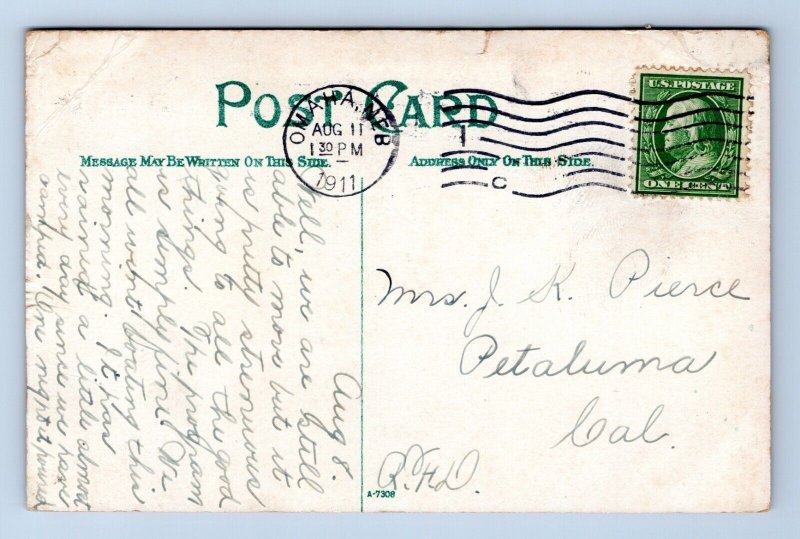 POST CARD
MESSAGE MAY BE WRITTEN ON THIS SIDE.
ADDRESS ONLY ON THIS SIDE.
OMAHA, NEB
AUG 11
1 30 PM
1911
C
U.S. POSTAGE
ONE CENT
Aug 8.
Well, we are still
able to move but it
is pretty strenuous
going to all the good
things. The program
is simply fine. We
all went boating this
morning. It has
rained a little about
every day since we have
One night it
Mrs. J. K. Pierce
Petaluma
Cal.
R.F.D.
A-7308